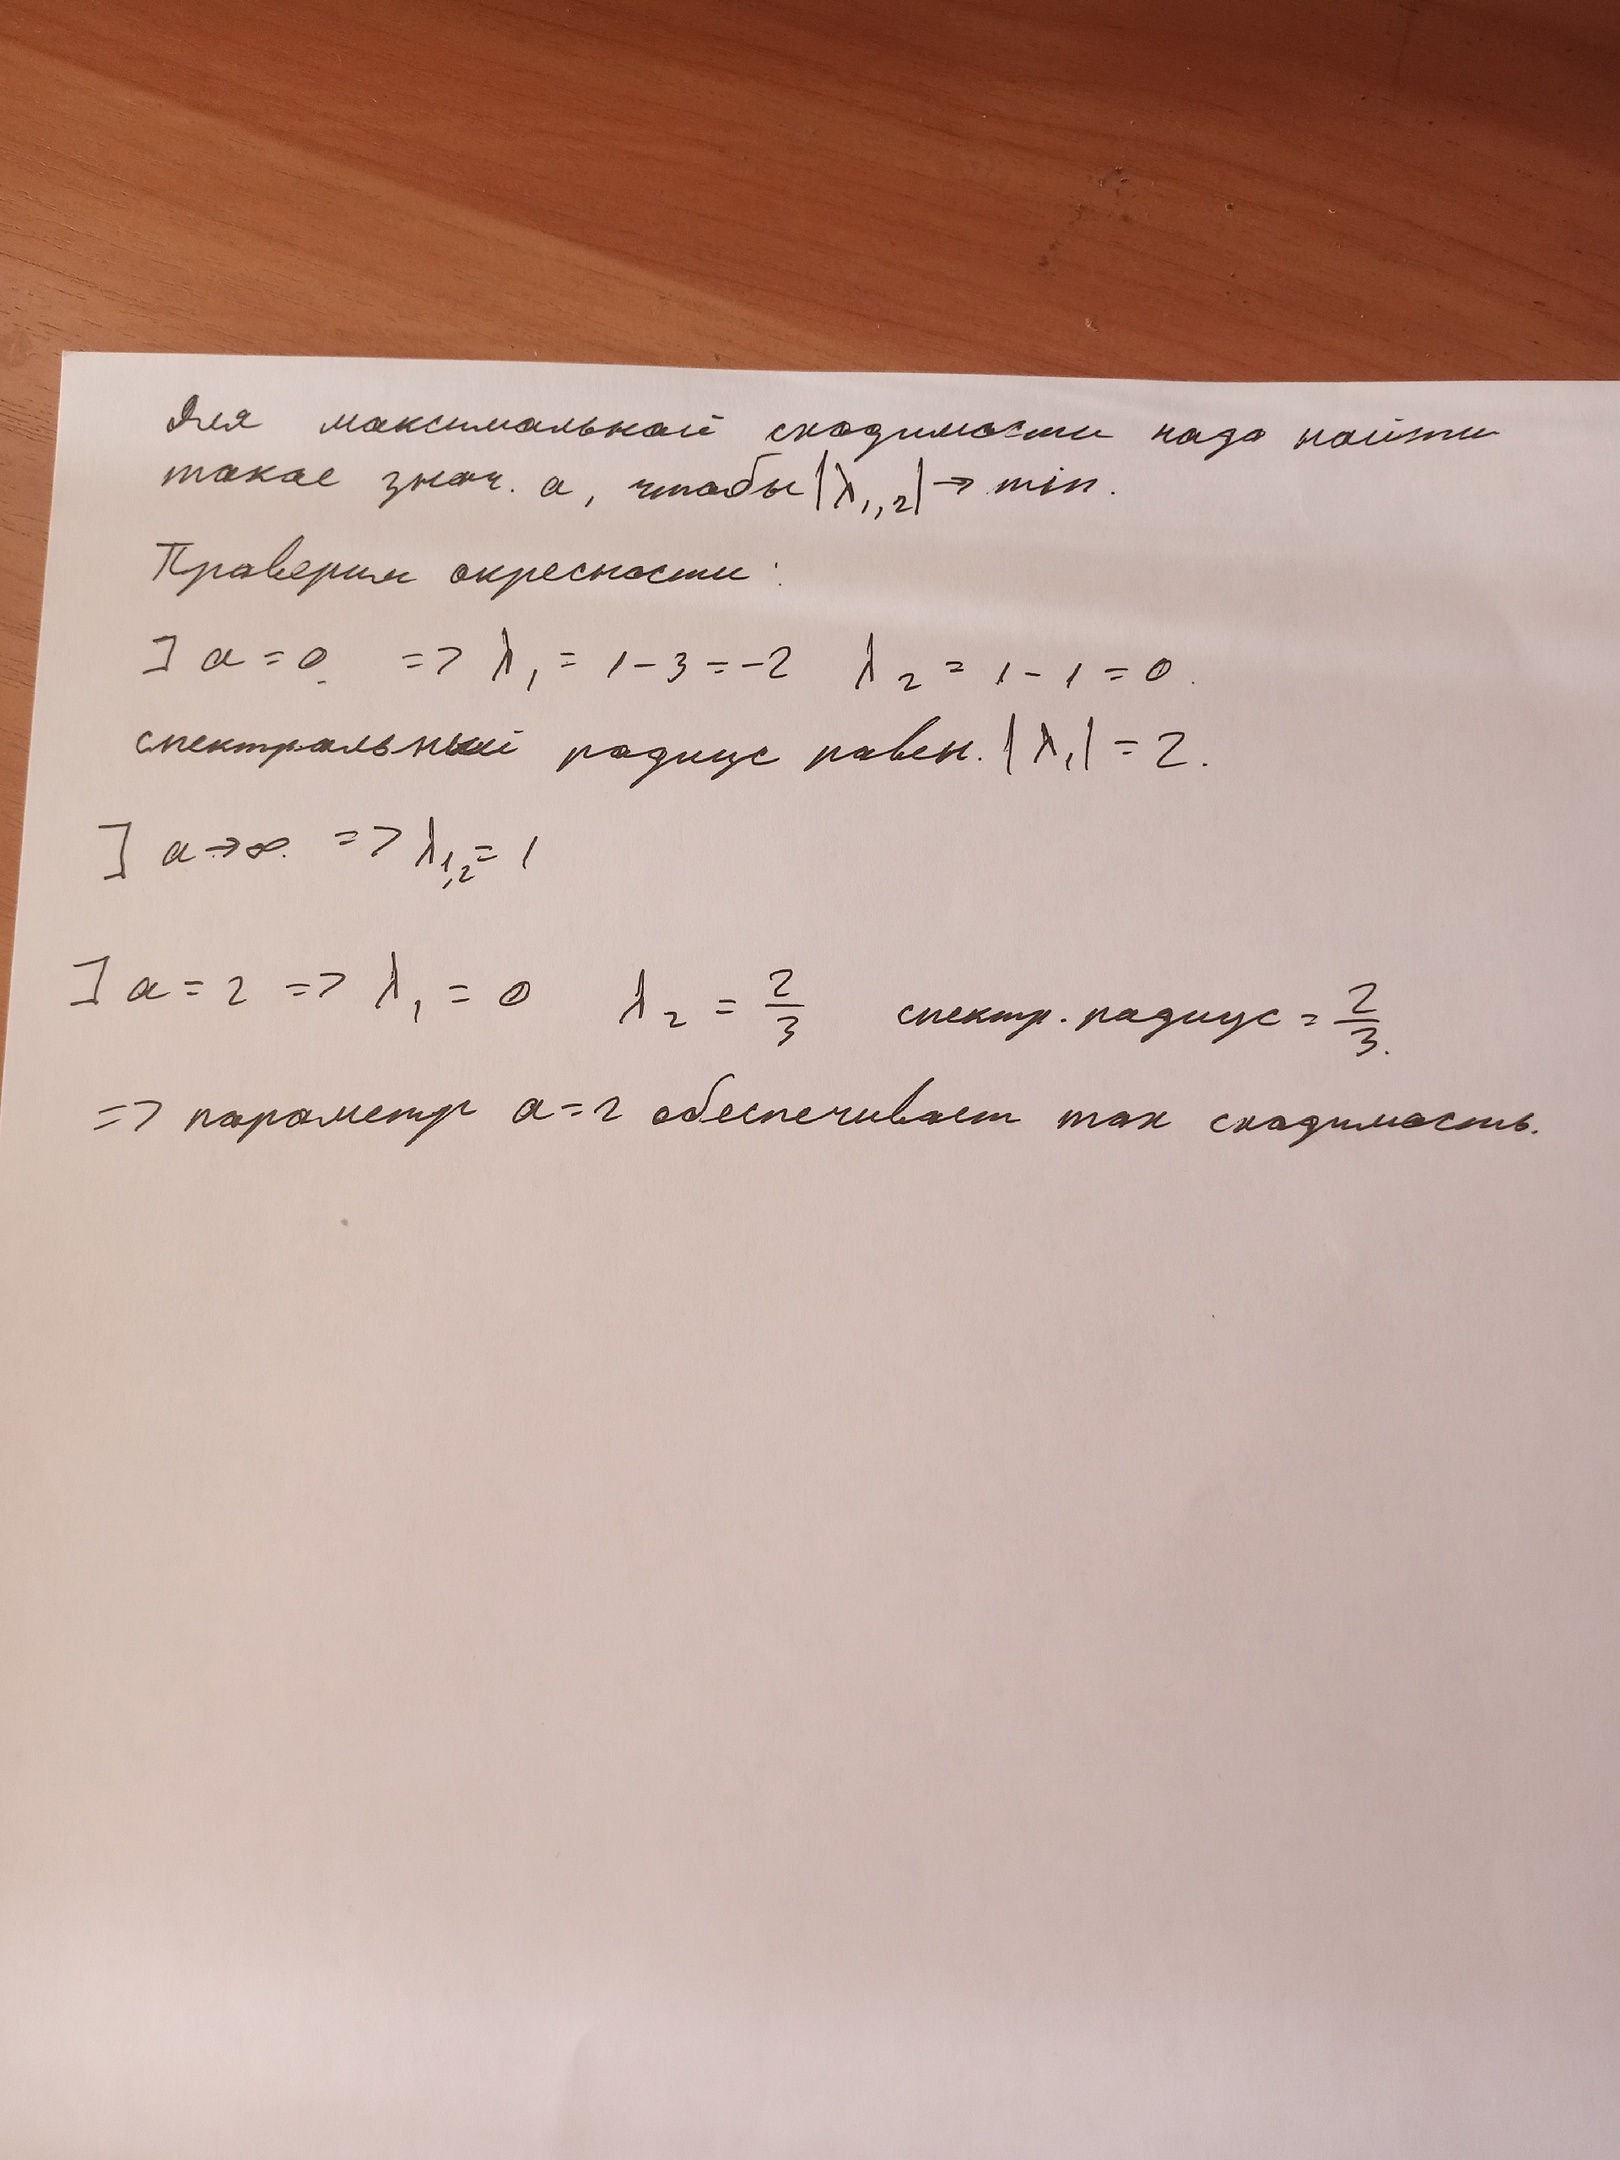 Для максимальной сходимости надо найти
такое знач. a, чтобы |λ1,2| → min.
Проверим окресности:
] a = 0. => λ1 = 1 - 3 = -2 λ2 = 1 - 1 = 0.
спектральный радиус равен. |λ1| = 2.
] a → ∞. => λ1,2 = 1
] a = 2 => λ1 = 0 λ2 = 2/3 спектр. радиус = 2/3.
=> параметр a = 2 обеспечивает max сходимость.